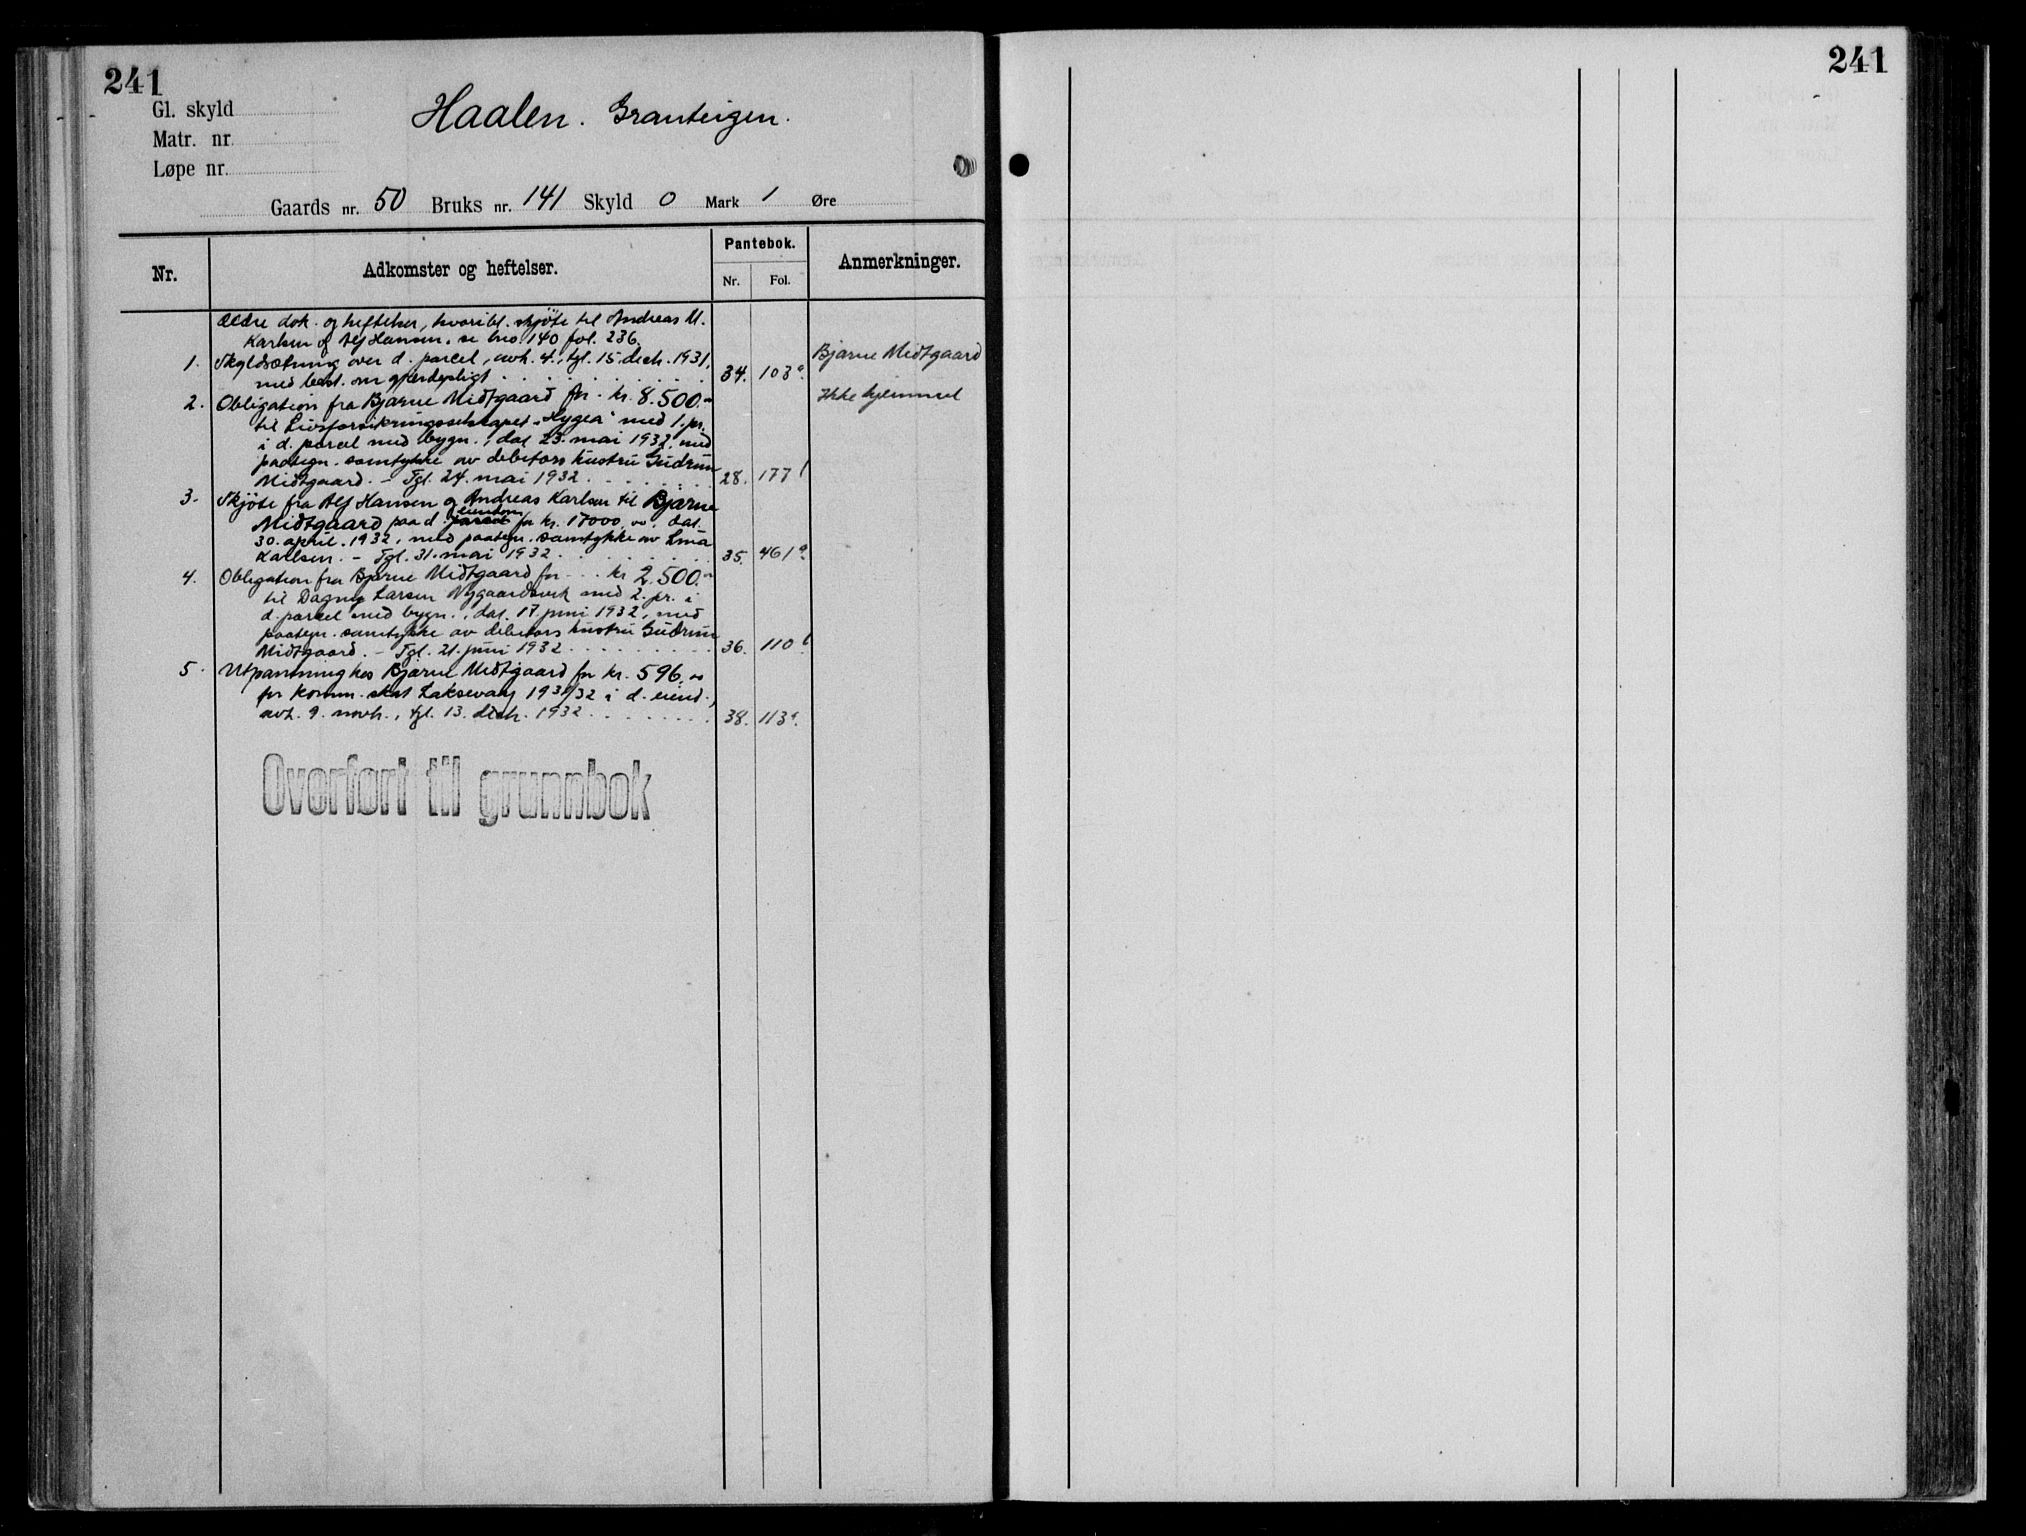 241
Gl. skyld
Matr. nr.
Løpe nr.
Haalen. Granteigen.
Gaards nr. 50 Bruks nr. 141 Skyld 0 Mark 1 Øre
Nr.
Adkomster og heftelser.
Pantebok.
Nr.
Fol.
Anmerkninger.
Ældre dok. og heftelser, hvoribl. skjöte til Andreas M.
Karlsen og Alf Hansen, se bno 140 fol. 236.
1. Skyldsætning over d. parcel, avh. 4., tgl. 15. decb. 1931,
med best. om gjærdepligt 34. 103a.
Bjarne Midtgaard
Ikke hjemmel
2. Obligation fra Bjarne Midtgaard for kr. 8.500.-
til Livsforsikringsselskapet "Hygea" med 1. pr.
i d. parcel med bygn., dat. 23. mai 1932, med
paategn. samtykke av debitors hustru Gudrun
Midtgaard. - Tgl. 24. mai 1932 28. 177b
3. Skjöte fra Alf Hansen og Andreas Karlsen til Bjarne
Midtgaard paa d. eiendom for kr. 17000,00, dat.
30. april 1932, med paategn. samtykke av
Karlsen. - Tgl. 31. mai 1932 35. 461a.
4. Obligation fra Bjarne Midtgaard for kr 2.500.-
til Dagny Larsen Nygaardsvik med 2. pr. i
d. parcel med bygn., dat. 17 juni 1932, med
paategn. samtykke av debitors hustru Gudrun
Midtgaard. - Tgl. 21. juni 1932 36. 110b.
5. Utpanning hos Bjarne Midtgaard for kr. 596,00
for komm. skat Laksevaag 1931/32 i d. eiend.,
avh. 9. novb., tgl. 13. decb. 1932 38. 113a.
Overført til grunnbok
241